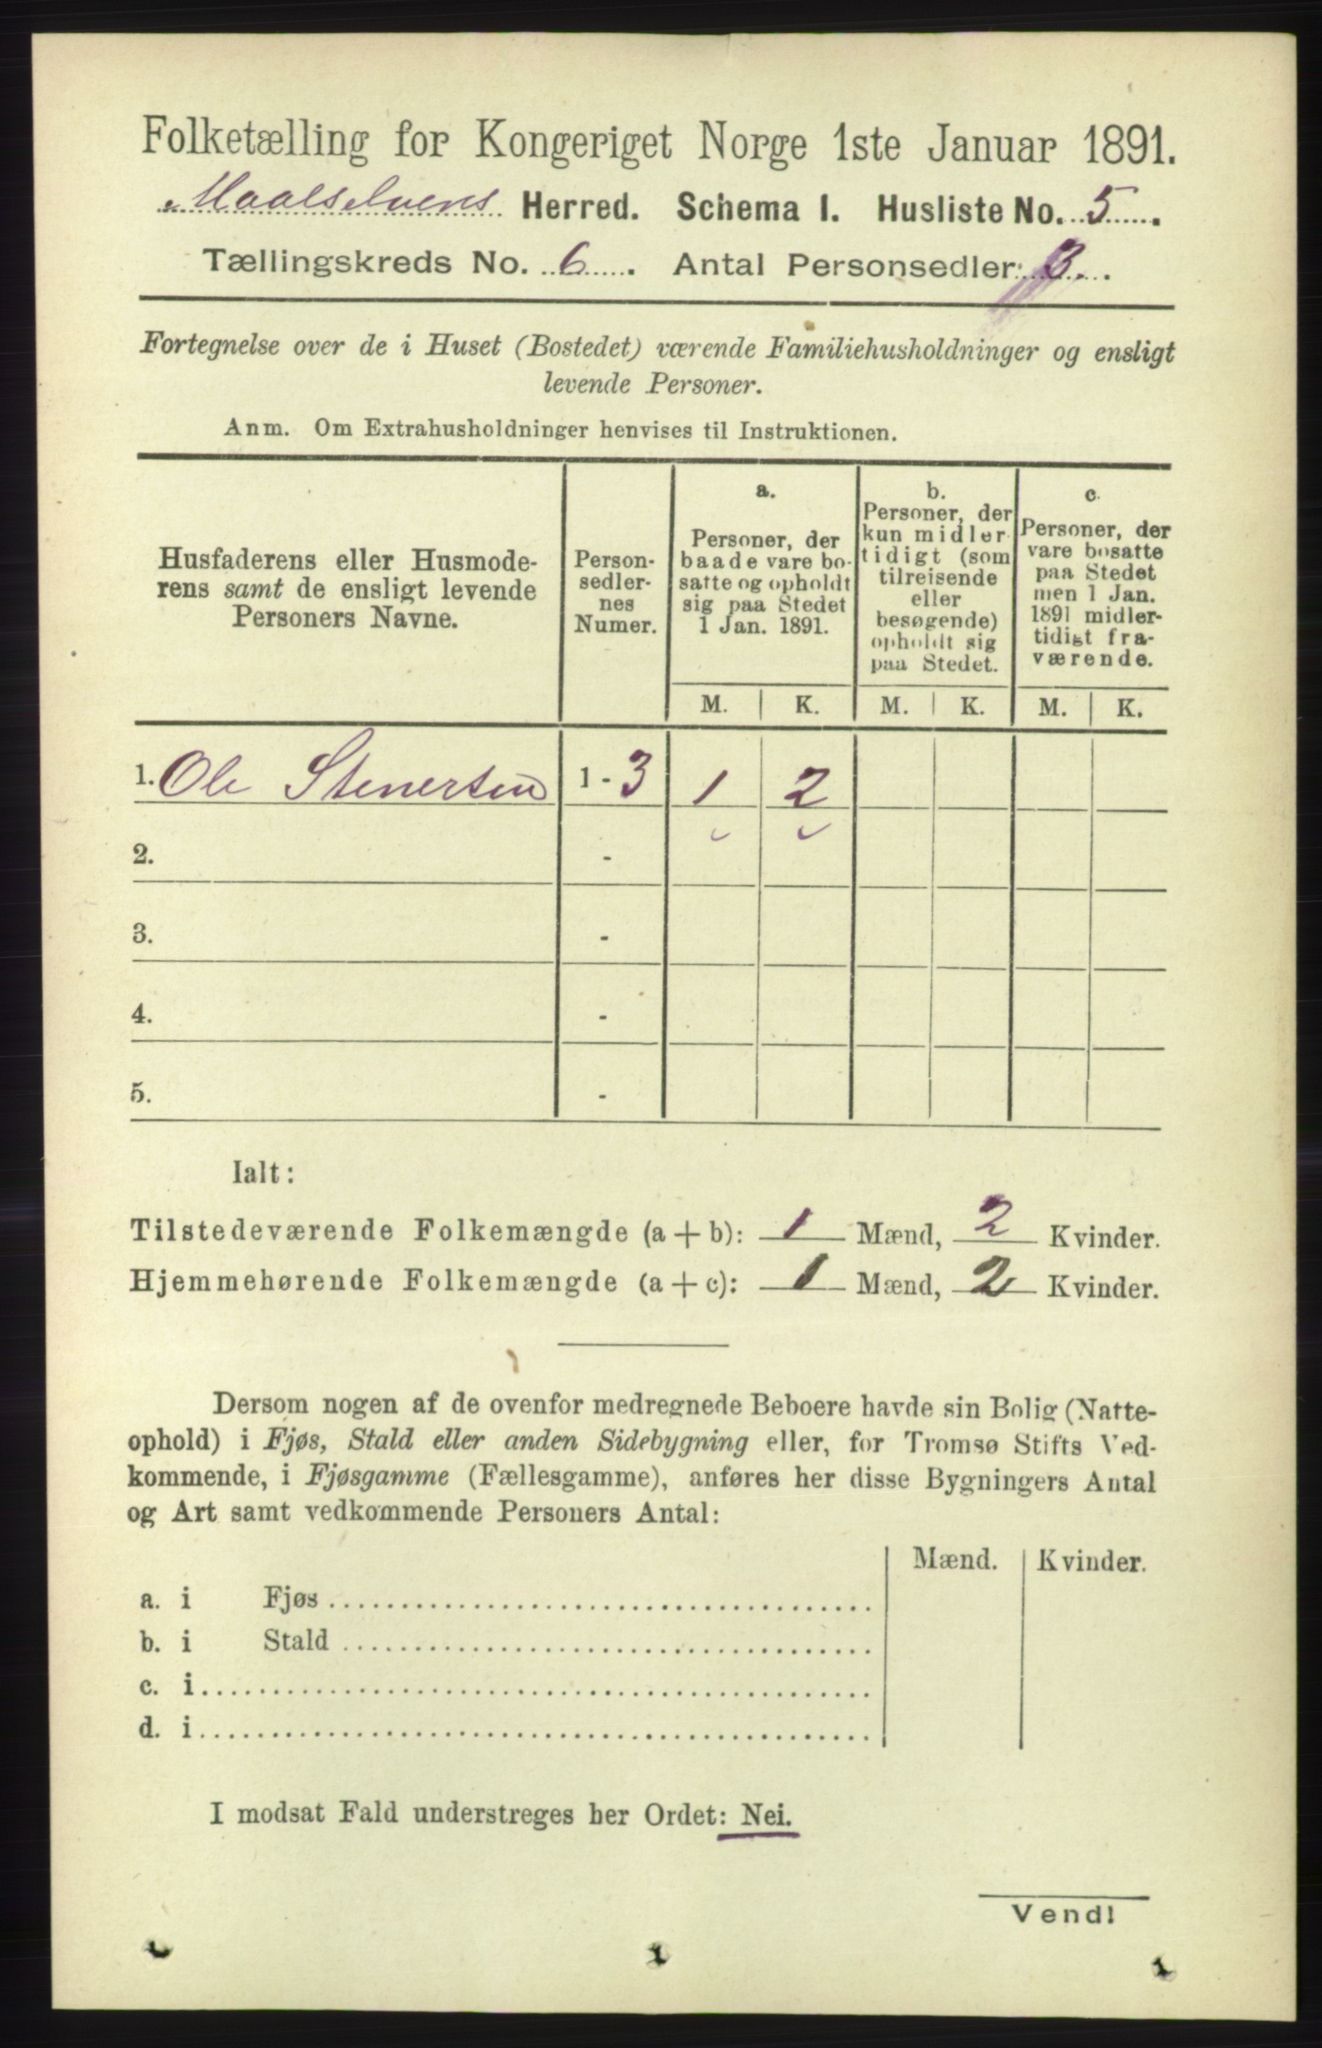 Folketælling for Kongeriget Norge 1ste Januar 1891.
Maalselvens Herred. Schema I. Husliste No. 5.
Tællingskreds No. 6. Antal Personsedler: 3.
Fortegnelse over de i Huset (Bostedet) værende Familiehusholdninger og ensligt
levende Personer.
Anm. Om Extrahusholdninger henvises til Instruktionen.
Husfaderens eller Husmode-
rens samt de ensligt levende
Personers Navne.
Person-
sedler-
nes
Numer.
a.
Personer, der
baade vare bo-
satte og opholdt
sig paa Stedet
1 Jan. 1891.
b.
Personer, der
kun midler-
tidigt (som
tilreisende
eller
besøgende)
opholdt sig
paa Stedet.
c.
Personer, der
vare bosatte
paa Stedet
men 1 Jan.
1891 midler-
tidigt fra-
værende.
M. K. M. K. M. K.
1. Ole Stenersen 1 - 3 1 2
2. -
3. -
4. -
5. -
Ialt:
Tilstedeværende Folkemængde (a + b): 1 Mænd, 2 Kvinder.
Hjemmehørende Folkemængde (a + c): 1 Mænd, 2 Kvinder.
Dersom nogen af de ovenfor medregnede Beboere havde sin Bolig (Natte-
ophold) i Fjøs, Stald eller anden Sidebygning eller, for Tromsø Stifts Ved-
kommende, i Fjøsgamme (Fællesgamme), anføres her disse Bygningers Antal
og Art samt vedkommende Personers Antal:
Mænd. Kvinder.
a. i Fjøs
b. i Stald
c. i
d. i
I modsat Fald understreges her Ordet: Nei.
Vend!